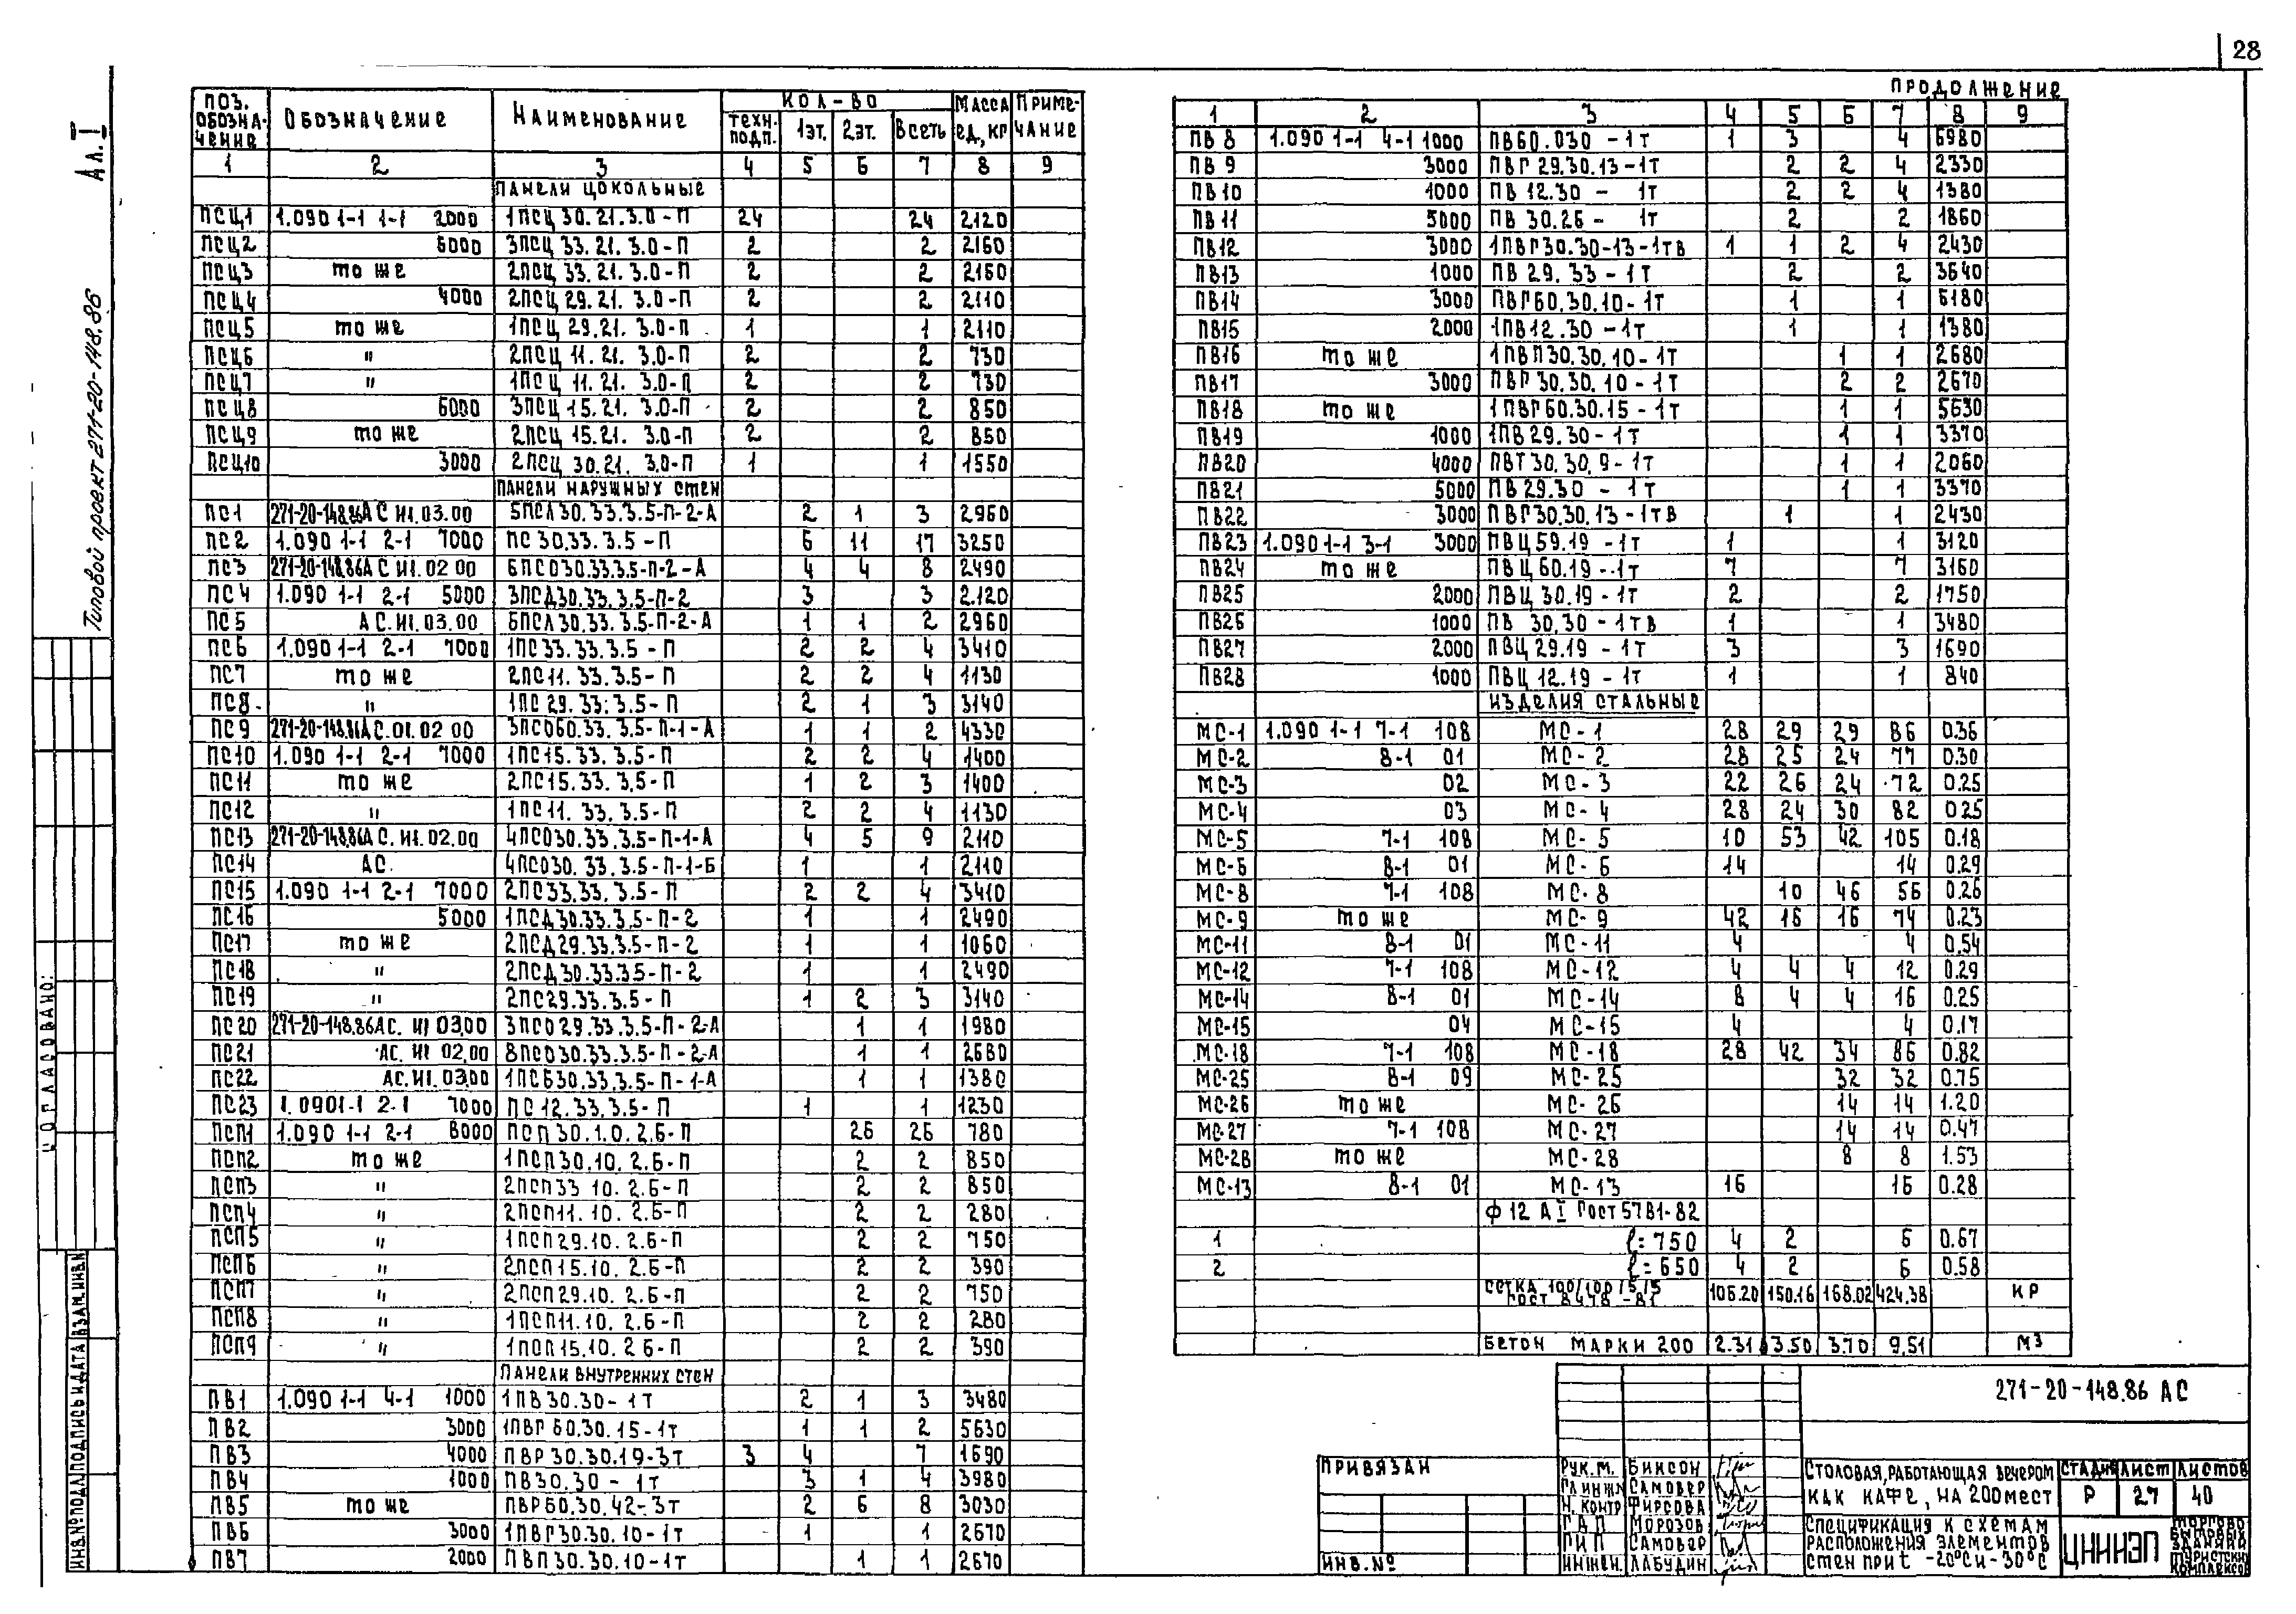 28
Ал. I
Типовой проект 271-20-148.86
СОГЛАСОВАНО:
ИНВ.№ПОДЛ. ПОДПИСЬ И ДАТА ВЗАМ.ИНВ.№
ПОЗ. ОБОЗНА-ЧЕНИЕ | ОБОЗНАЧЕНИЕ | НАИМЕНОВАНИЕ | КОЛ-ВО | МАССА ЕД, КГ | ПРИМЕ-ЧАНИЕ
ТЕХН. ПОДП. | 1ЭТ. | 2ЭТ. | ВСЕГЬ
1 2 3 4 5 6 7 8 9
ПАНЕЛИ ЦОКОЛЬНЫЕ
ПСЦ1 1.090 1-1 1-1 2000 1ПСЦ 30.21.3.0-П 24 24 2120
ПСЦ2 6000 3ПСЦ 33.21.3.0-П 2 2 2160
ПСЦ3 то же 2ПСЦ 33.21.3.0-П 2 2 2160
ПСЦ4 4000 2ПСЦ 29.21.3.0-П 2 2 2110
ПСЦ5 то же 1ПСЦ 29.21.3.0-П 1 1 2110
ПСЦ6 " 2ПСЦ 11.21.3.0-П 2 2 730
ПСЦ7 " 1ПСЦ 11.21.3.0-П 2 2 730
ПСЦ8 6000 3ПСЦ 15.21.3.0-П 2 2 850
ПСЦ9 то же 2ПСЦ 15.21.3.0-П 2 2 850
ПСЦ10 3000 2ПСЦ 30.21.3.0-П 1 1 1550
ПАНЕЛИ НАРУЖНЫХ СТЕН
ПС1 271-20-148.86АС И1.03.00 5ПСЛ30.33.3.5-П-2-А 2 1 3 2960
ПС2 1.090 1-1 2-1 7000 ПС 30.33.3.5-П 6 11 17 3250
ПС3 271-20-148.86АС И1.02 00 6ПСО30.33.3.5-П-2-А 4 4 8 2490
ПС4 1.090 1-1 2-1 5000 3ПСД30.33.3.5-П-2 3 3 2.120
ПС5 АС.И1.03.00 6ПСЛ30.33.3.5-П-2-А 1 1 2 2960
ПС6 1.090 1-1 2-1 7000 1ПС33.33.3.5-П 2 2 4 3410
ПС7 то же 2ПС11.33.3.5-П 2 2 4 1130
ПС8 " 1ПС 29.33.3.5-П 2 1 3 3140
ПС9 271-20-148.86АС.01.02 00 3ПСО60.33.3.5-П-1-А 1 1 2 4330
ПС10 1.090 1-1 2-1 7000 1ПС15.33.3.5-П 2 2 4 1400
ПС11 то же 2ПС15.33.3.5-П 1 2 3 1400
ПС12 " 1ПС11.33.3.5-П 2 2 4 1130
ПС13 271-20-148.86АС.И1.02.00 4ПСО30.33.3.5-П-1-А 4 5 9 2110
ПС14 АС. 4ПСО30.33.3.5-П-1-Б 1 1 2110
ПС15 1.090 1-1 2-1 7000 2ПС33.33.3.5-П 2 2 4 3410
ПС16 5000 1ПСД30.33.3.5-П-2 1 1 2490
ПС17 то же 2ПСД29.33.3.5-П-2 1 1 1060
ПС18 " 2ПСД30.33.3.5-П-2 1 1 2490
ПС19 " 2ПС29.33.3.5-П 1 2 3 3140
ПС20 271-20-148.86АС. И1 03.00 3ПСО29.33.3.5-П-2-А 1 1 1980
ПС21 АС. И1 02.00 8ПСО30.33.3.5-П-2-А 1 1 2680
ПС22 АС.И1.03.00 1ПСБ30.33.3.5-П-1-А 1 1 1380
ПС23 1.0901-1 2-1 7000 ПС 12.33.3.5-П 1 1 1230
ПСП1 1.090 1-1 2-1 8000 ПСП30.1.0.2.6-П 26 26 780
ПСП2 то же 1ПСП30.10.2.6-П 2 2 850
ПСП3 " 2ПСП33 10.2.6-П 2 2 850
ПСП4 " 2ПСП11.10.2.6-П 2 2 280
ПСП5 " 1ПСП29.10.2.6-П 2 2 750
ПСП6 " 2ПСП15.10.2.6-П 2 2 390
ПСП7 " 2ПСП29.10.2.6-П 2 2 750
ПСП8 " 1ПСП11.10.2.6-П 2 2 280
ПСП9 " 1ПСП15.10.2 6-П 2 2 390
ПАНЕЛИ ВНУТРЕННИХ СТЕН
ПВ1 1.090 1-1 4-1 1000 1ПВ30.30-1Т 2 1 3 3480
ПВ2 3000 1ПВГ60.30.15-1Т 1 1 2 5630
ПВ3 4000 ПВР30.30.19-3Т 3 4 7 1690
ПВ4 1000 ПВ30.30-1Т 3 1 4 3980
ПВ5 то же ПВР60.30.42-3Т 2 6 8 3030
ПВ6 3000 1ПВГ30.30.10-1Т 1 1 2670
ПВ7 2000 ПВП30.30.10-1Т 1 1 2670
ПРОДОЛЖЕНИЕ
1 2 3 4 5 6 7 8 9
ПВ8 1.090 1-1 4-1 1000 ПВ60.030-1Т 1 3 4 6980
ПВ9 3000 ПВГ29.30.13-1Т 2 2 4 2330
ПВ10 1000 ПВ 12.30-1Т 2 2 4 1380
ПВ11 5000 ПВ 30.26-1Т 2 2 1860
ПВ12 3000 1ПВГ30.30-13-1ТВ 1 1 2 4 2430
ПВ13 1000 ПВ 29.33-1Т 2 2 3640
ПВ14 3000 ПВГ60.30.10-1Т 1 1 6180
ПВ15 2000 1ПВ12.30-1Т 1 1 1380
ПВ16 то же 1ПВП30.30.10-1Т 1 1 2680
ПВ17 3000 ПВГ30.30.10-1Т 2 2 2670
ПВ18 то же 1ПВГ60.30.15-1Т 1 1 5630
ПВ19 1000 1ПВ29.30-1Т 1 1 3370
ПВ20 4000 ПВТ30.30.9-1Т 1 1 2060
ПВ21 5000 ПВ29.30-1Т 1 1 3370
ПВ22 3000 ПВГ30.30.13-1ТВ 1 1 2430
ПВ23 1.090 1-1 3-1 3000 ПВЦ59.19-1Т 1 1 3120
ПВ24 то же ПВЦ60.19-1Т 7 7 3160
ПВ25 2000 ПВЦ30.19-1Т 2 2 1750
ПВ26 1000 ПВ 30.30-1ТВ 1 1 3480
ПВ27 2000 ПВЦ29.19-1Т 3 3 1690
ПВ28 1000 ПВЦ12.19-1Т 1 1 840
ИЗДЕЛИЯ СТАЛЬНЫЕ
МС-1 1.090 1-1 7-1 108 МС-1 28 29 29 86 0.36
МС-2 8-1 01 МС-2 28 25 24 77 0.30
МС-3 02 МС-3 22 26 24 72 0.25
МС-4 03 МС-4 28 24 30 82 0.25
МС-5 7-1 108 МС-5 10 53 42 105 0.18
МС-6 8-1 01 МС-6 14 14 0.29
МС-8 7-1 108 МС-8 10 46 56 0.26
МС-9 то же МС-9 42 16 16 74 0.23
МС-11 8-1 01 МС-11 4 4 0.54
МС-12 7-1 108 МС-12 4 4 4 12 0.29
МС-14 8-1 01 МС-14 8 4 4 16 0.25
МС-15 04 МС-15 4 4 0.17
МС-18 7-1 108 МС-18 28 42 34 86 0.82
МС-25 8-1 09 МС-25 32 32 0.75
МС-26 то же МС-26 14 14 1.20
МС-27 7-1 108 МС-27 14 14 0.47
МС-28 то же МС-28 8 8 1.53
МС-13 8-1 01 МС-13 16 16 0.28
ф 12 АI ГОСТ 5781-82
1 ℓ=750 4 2 6 0.67
2 ℓ=650 4 2 6 0.58
СЕТКА 100/100/5/5 ГОСТ 8478-81 106.20 150.16 168.02 424.38 КР
БЕТОН МАРКИ 200 2.31 3.50 3.70 9.51 М3
271-20-148.86 АС
ПРИВЯЗАН
ИНВ.№
РУК.М. БИКСОН
ГЛ.ИНЖ. САМОВЕР
Н.КОНТР. ФИРСОВА
ГАП МОРОЗОВ
ГИП САМОВЕР
ИНЖЕН. ЛАБУДИН
СТОЛОВАЯ, РАБОТАЮЩАЯ ВЕЧЕРОМ
КАК КАФЕ, НА 200 МЕСТ
СТАДИЯ ЛИСТ ЛИСТОВ
Р 27 40
СПЕЦИФИКАЦИЯ К СХЕМАМ
РАСПОЛОЖЕНИЯ ЭЛЕМЕНТОВ
СТЕН ПРИ t -20°С И -30°С
ЦНИИЭП
ТОРГОВО
БЫТОВЫХ
ЗДАНИЙ И
ТУРИСТСКИХ
КОМПЛЕКСОВ